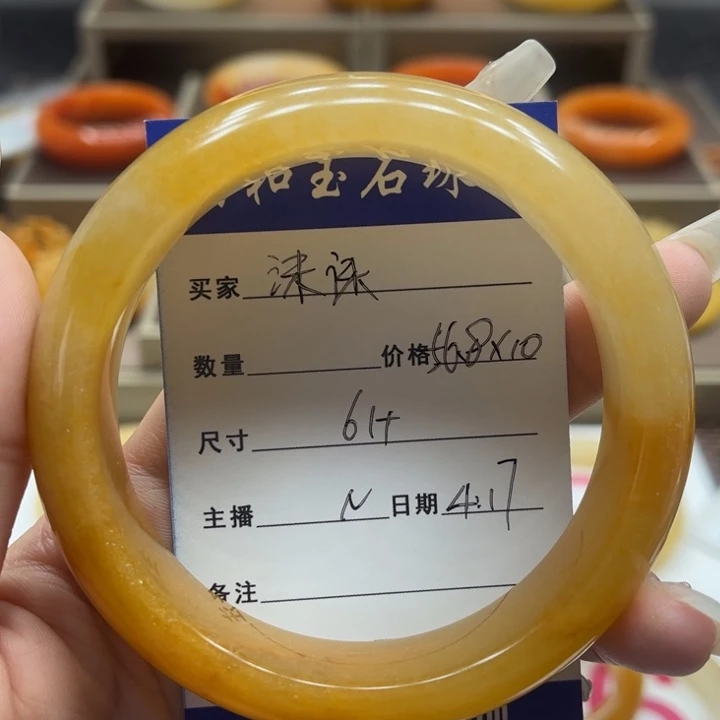 和玉石
买家
数量 价格568×10
尺寸 61+
主播 N 日期 4.17
备注